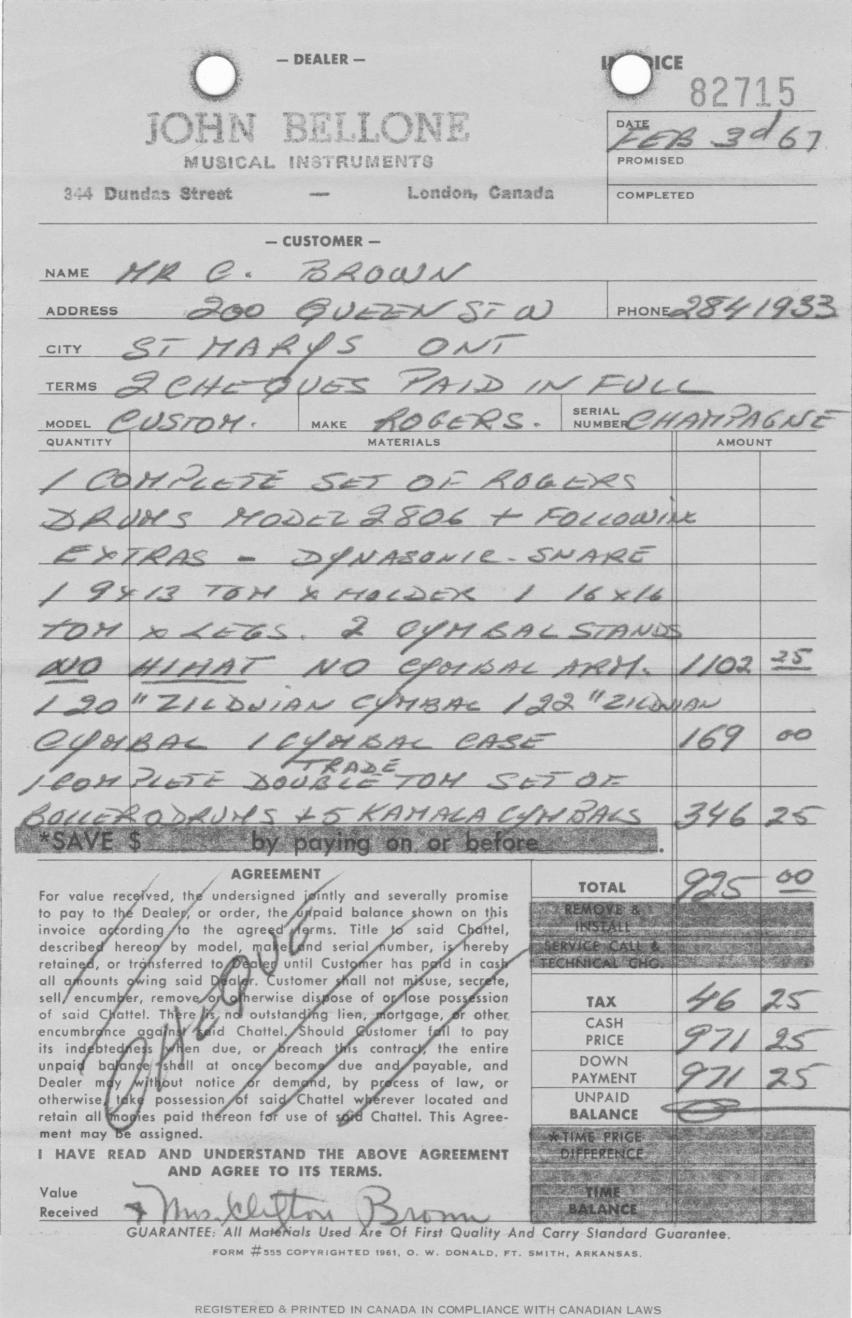 — DEALER —
INVOICE
82715
JOHN BELLONE
MUSICAL INSTRUMENTS
344 Dundas Street — London, Canada
DATE FEB 3d 67
PROMISED
COMPLETED
— CUSTOMER —
NAME MR C. BROWN
ADDRESS 200 QUEEN ST W PHONE 284 1933
CITY ST MARYS ONT
TERMS 2 CHEQUES PAID IN FULL
MODEL CUSTOM. MAKE ROGERS. SERIAL NUMBER CHAMPAGNE
QUANTITY MATERIALS AMOUNT
1 COMPLETE SET OF ROGERS
DRUMS MODEL 2806 + FOLLOWING
EXTRAS - DYNASONIC - SNARE
1 9X13 TOM X HOLDER 1 16X16
TOM X LEGS. 2 CYMBAL STANDS
NO HIHAT NO CYMBAL ARM. 1102 25
1 20" ZILDJIAN CYMBAL 1 22" ZILDJIAN
CYMBAL 1 CYMBAL CASE 169 00
TRADE
1 COMPLETE DOUBLE TOM SET OF
BOLLERO DRUMS + 5 KAMALA CYMBALS 346 25
*SAVE $ by paying on or before .
AGREEMENT
For value received, the undersigned jointly and severally promise
to pay to the Dealer, or order, the unpaid balance shown on this
invoice according to the agreed terms. Title to said Chattel,
described hereon by model, make and serial number, is hereby
retained, or transferred to Dealer until Customer has paid in cash
all amounts owing said Dealer. Customer shall not misuse, secrete,
sell, encumber, remove or otherwise dispose of or lose possession
of said Chattel. There is no outstanding lien, mortgage, or other
encumbrance against said Chattel. Should Customer fail to pay
its indebtedness when due, or breach this contract, the entire
unpaid balance shall at once become due and payable, and
Dealer may without notice or demand, by process of law, or
otherwise, take possession of said Chattel wherever located and
retain all monies paid thereon for use of said Chattel. This Agree-
ment may be assigned.
I HAVE READ AND UNDERSTAND THE ABOVE AGREEMENT
AND AGREE TO ITS TERMS.
Value
Received Mrs. Clifton Brown
TOTAL 925 00
REMOVE &
INSTALL
SERVICE CALL &
TECHNICAL CHG.
TAX 46 25
CASH
PRICE 971 25
DOWN
PAYMENT 971 25
UNPAID
BALANCE
*TIME PRICE
DIFFERENCE
TIME
BALANCE
GUARANTEE: All Materials Used Are Of First Quality And Carry Standard Guarantee.
FORM #555 COPYRIGHTED 1961, O. W. DONALD, FT. SMITH, ARKANSAS.
REGISTERED & PRINTED IN CANADA IN COMPLIANCE WITH CANADIAN LAWS